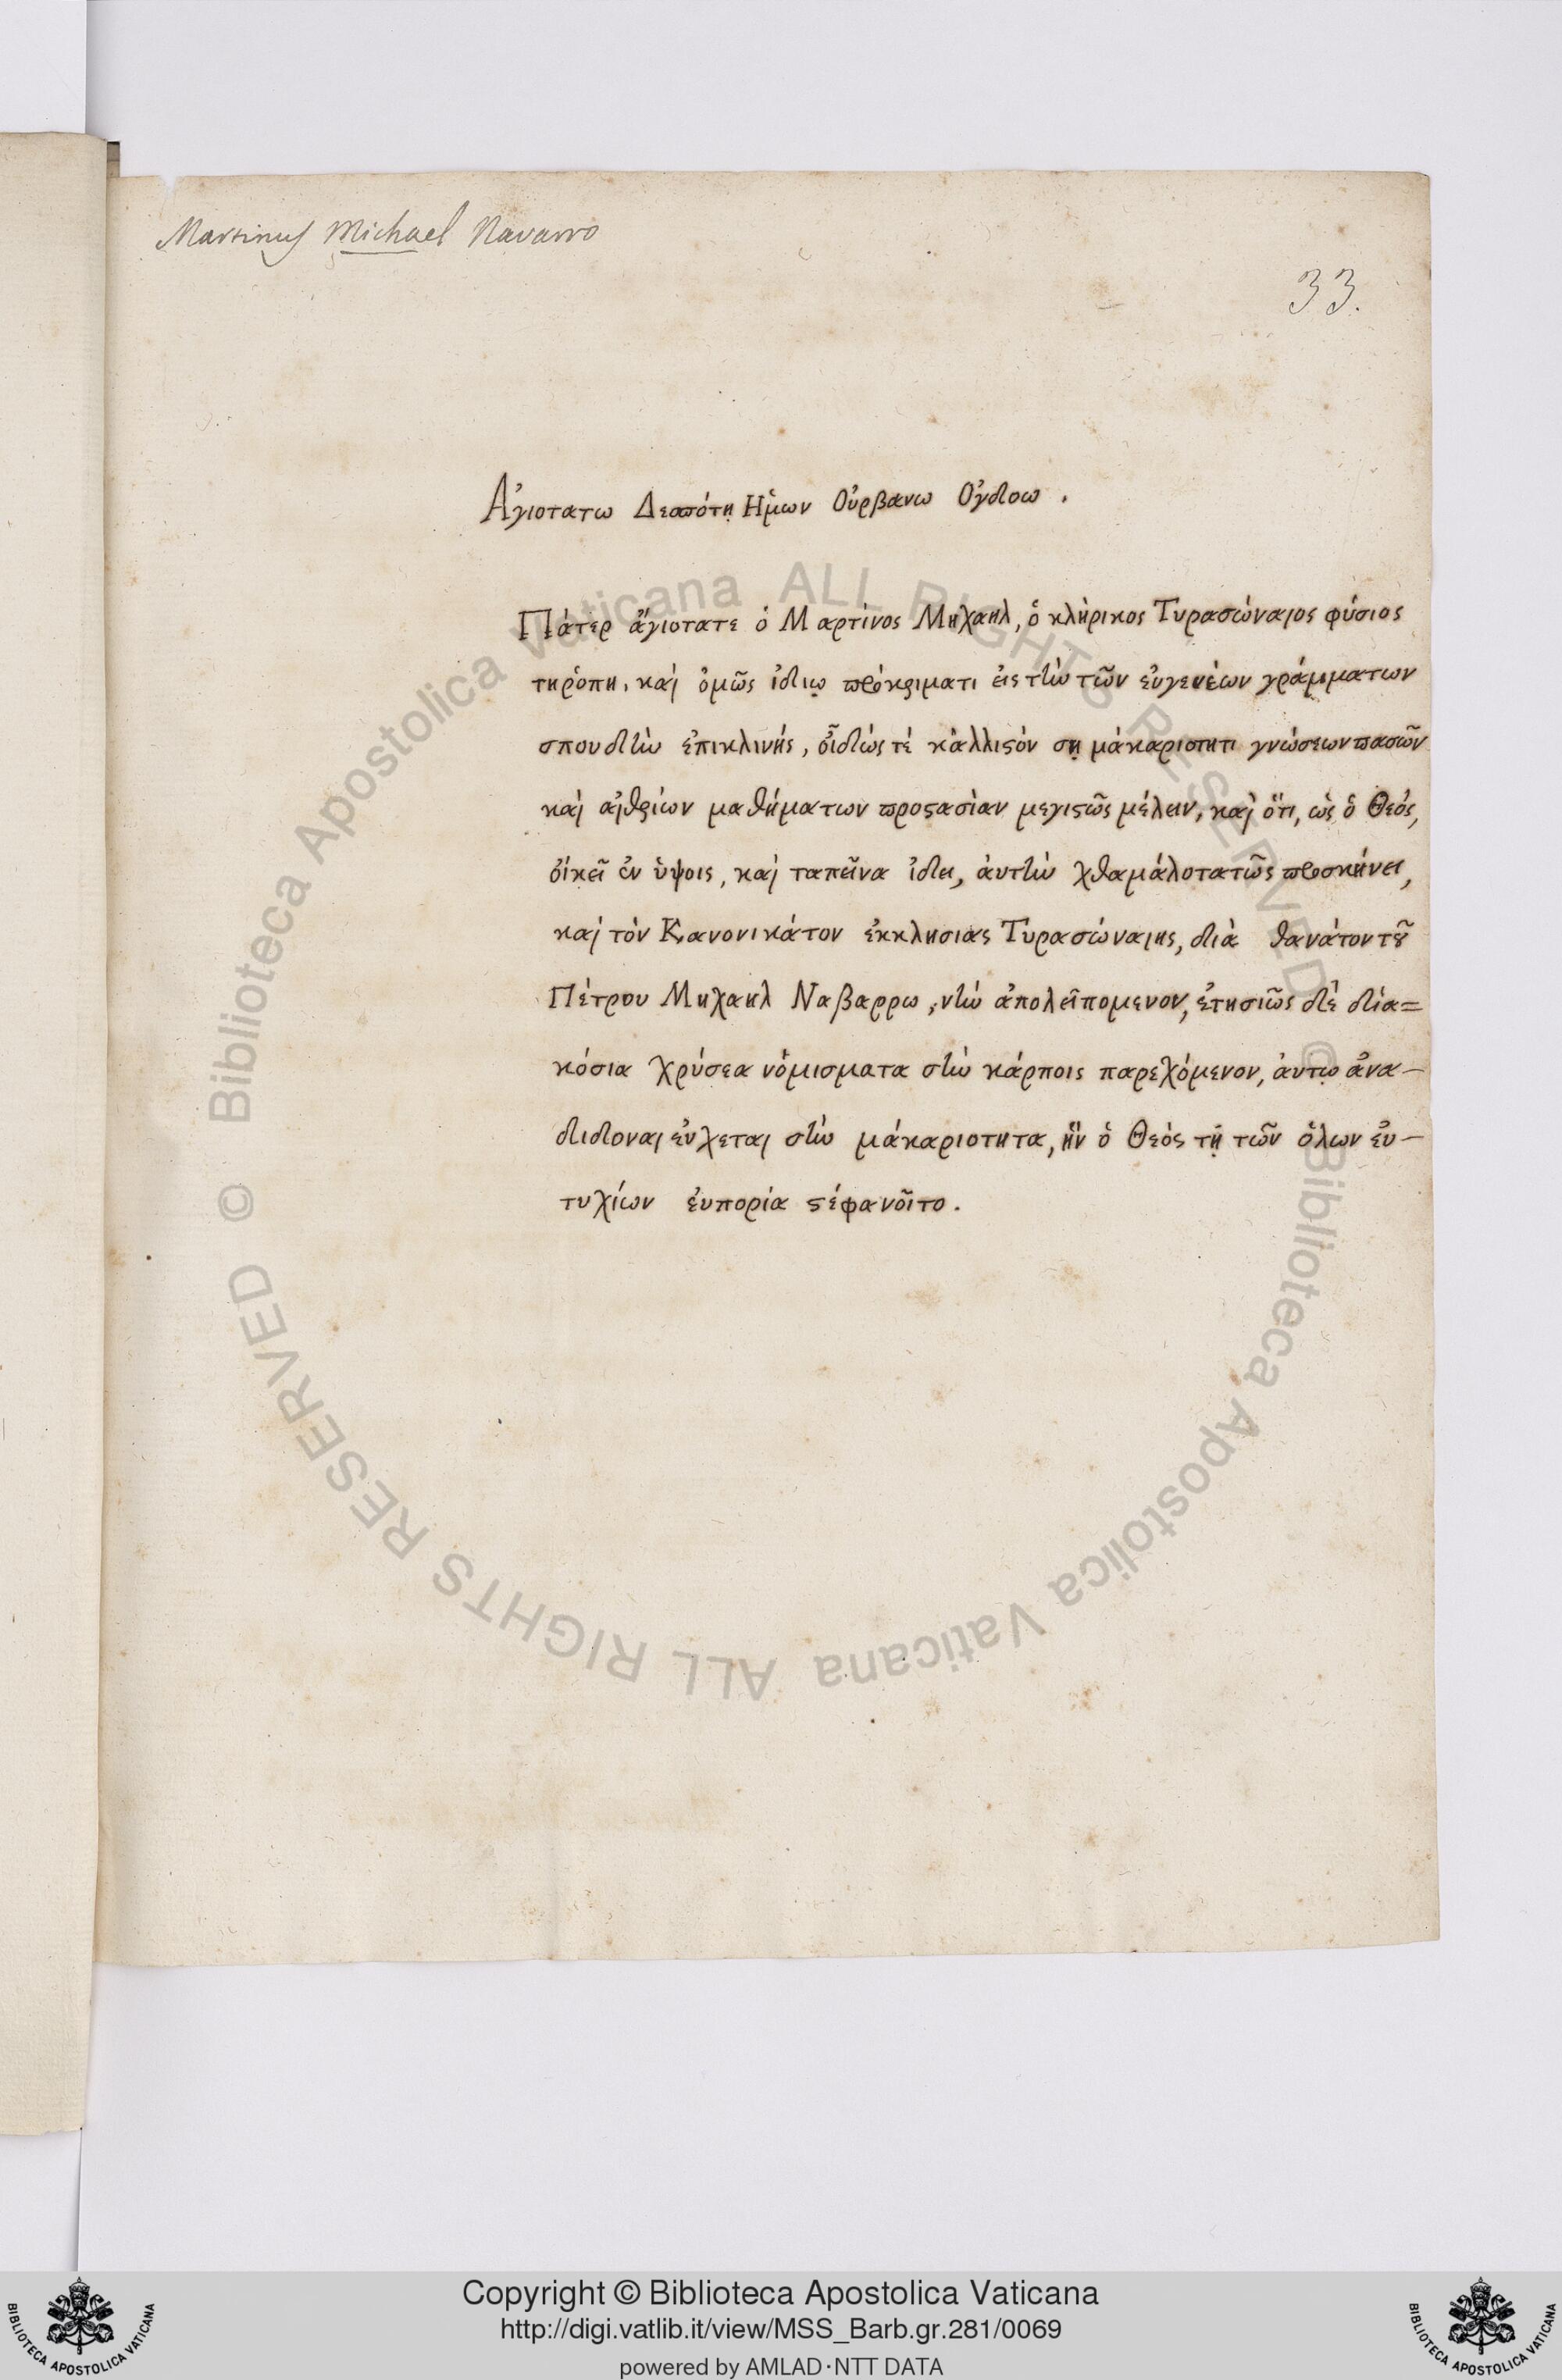 Martinus Michael Navarro
33.
Ἁγιοτατω Δεσπότῃ Ἡμων Οὐρβανω Ὀγδοω .
Πάτερ ἅγιοτατε ὁ Μαρτίνος Μηχαηλ, ὁ κλήρικος Τυρασώναιος φύσιος
τηρόπη, καὶ ὁμῶς ἰδιῳ πρόκριματι εἰς τὴν τῶν εὐγενέων γράμματων
σπουδὴν ἐπικλινής, οἶδώς τέ κάλλιστόν σῃ μάκαριοτητι γνώσεων πασῶν
καὶ αἰθρίων μαθήματων προστασίαν μεγιστῶς μέλειν, καὶ ὅτι, ὡς ὁ Θεός,
οἰκεῖ ἐν ὑψοις, καὶ ταπεῖνα ἰδει, ἀυτὴν χθαμάλοτατῶς προσκήνει,
καὶ τὸν Κανονικάτον ἐκκλησιας Τυρασώναιης, διὰ θανάτον τοῦ
Πέτρου Μηχαηλ Ναβαρρω, νὴν ἀπολεῖπομενον, ἐτησιῶς δὲ δία=
κόσια χρύσεα νόμισματα σὴν κάρποις παρεχόμενον, ἀυτῳ ἀνα-
διδοναι εὐχεται σὴν μάκαριοτητα, ἣν ὁ Θεὸς τῇ τῶν ὅλων εὐ-
τυχίων ἐυπορία στέφανοῖτο.
© Biblioteca Apostolica Vaticana ALL RIGHTS RESERVED © Biblioteca Apostolica Vaticana ALL RIGHTS RESERVED
Copyright © Biblioteca Apostolica Vaticana
http://digi.vatlib.it/view/MSS_Barb.gr.281/0069
powered by AMLAD·NTT DATA
BIBLIOTECA APOSTOLICA VATICANA
BIBLIOTECA APOSTOLICA VATICANA